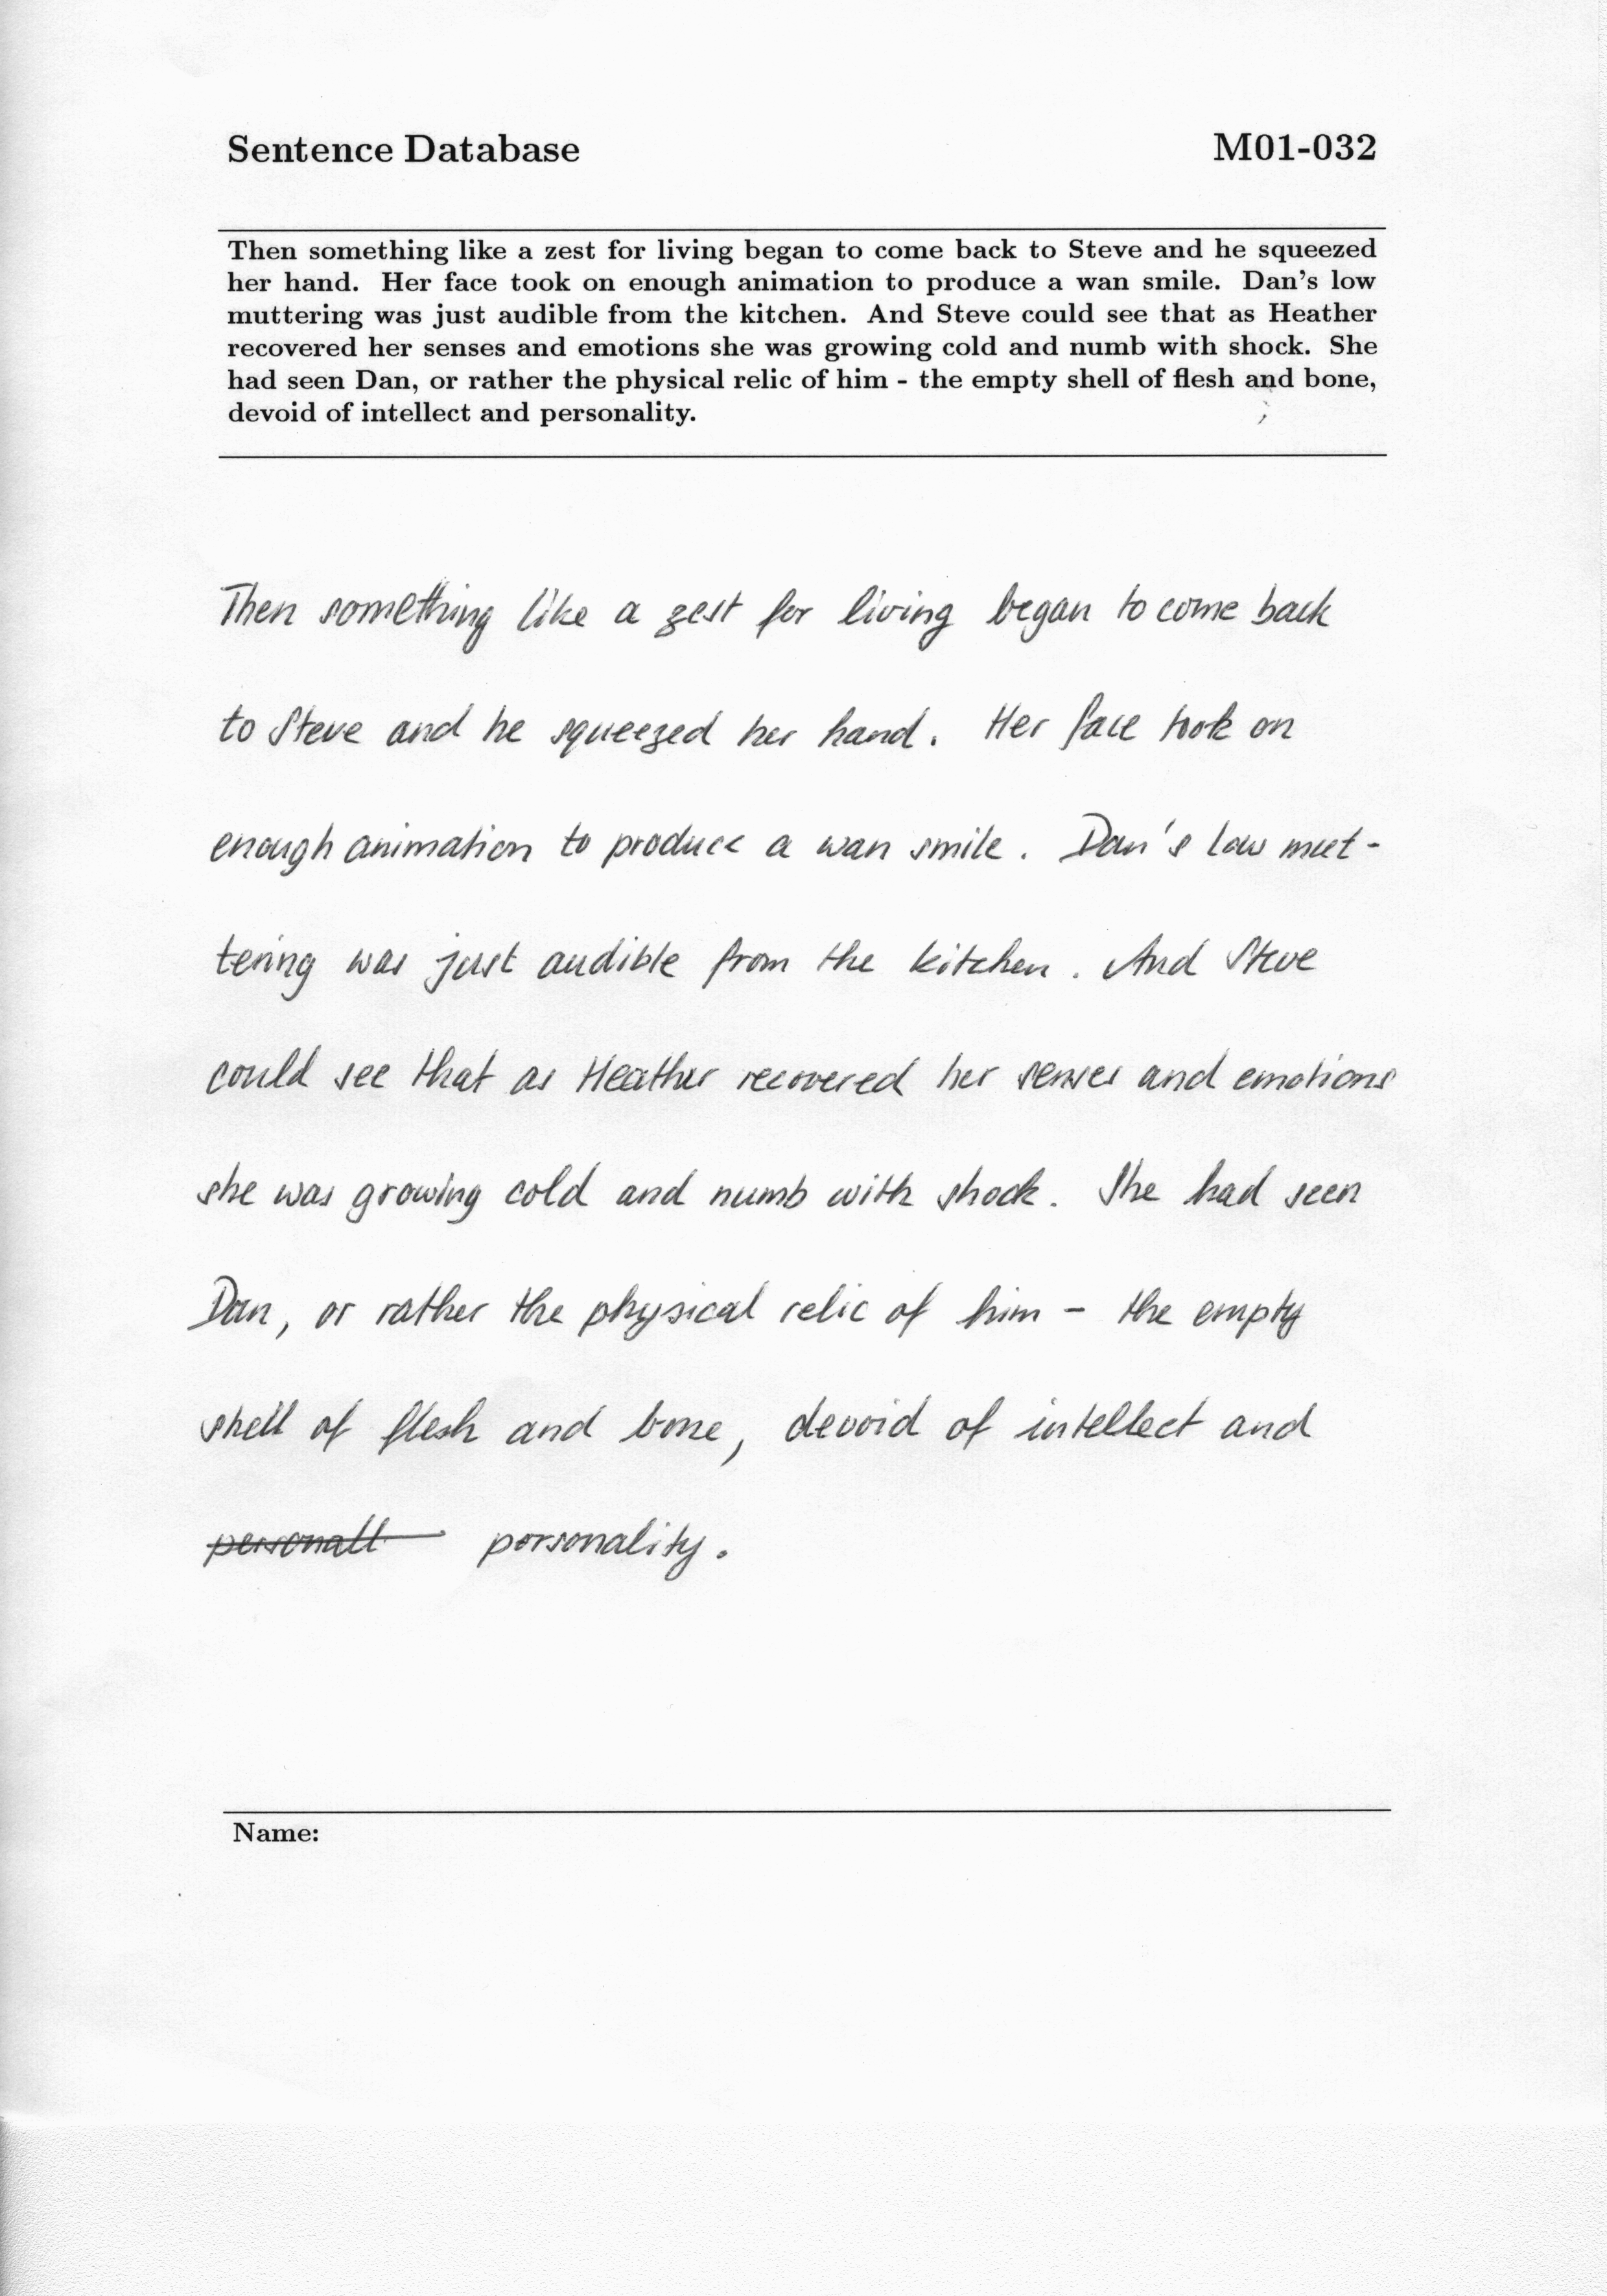 Sentence Database M01-032
Then something like a zest for living began to come back to Steve and he squeezed
her hand. Her face took on enough animation to produce a wan smile. Dan's low
muttering was just audible from the kitchen. And Steve could see that as Heather
recovered her senses and emotions she was growing cold and numb with shock. She
had seen Dan, or rather the physical relic of him - the empty shell of flesh and bone,
devoid of intellect and personality.
Then something like a zest for living began to come back
to Steve and he squeezed her hand. Her face took on
enough animation to produce a wan smile. Dan's low mut-
tering was just audible from the kitchen. And Steve
could see that as Heather recovered her senses and emotions
she was growing cold and numb with shock. She had seen
Dan, or rather the physical relic of him - the empty
shell of flesh and bone, devoid of intellect and
personall porsonality.
Name: